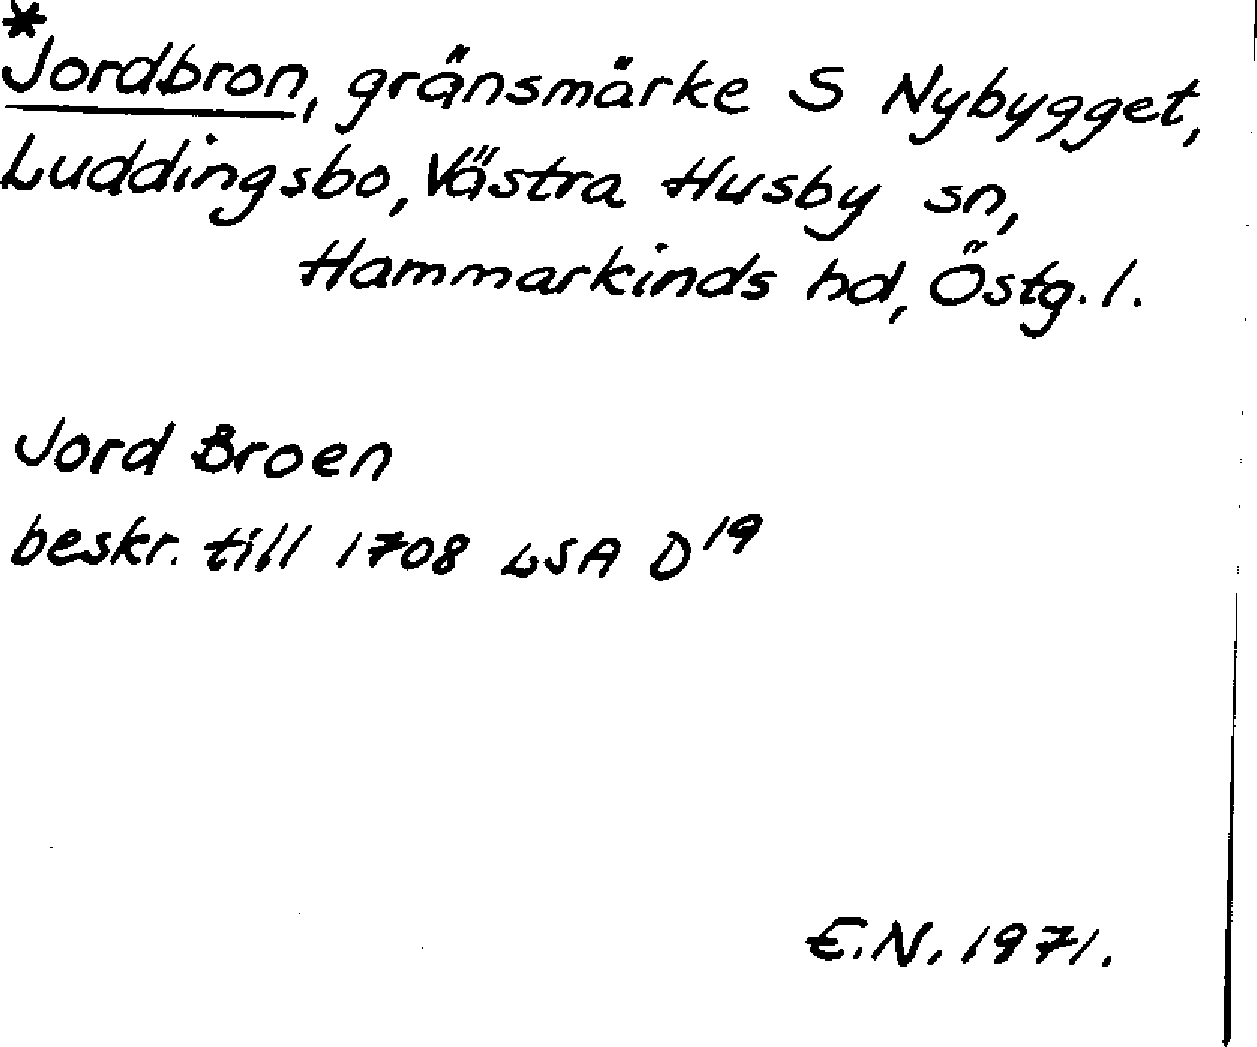 *Jordbron, gränsmärke S Nybygget,
Luddingsbo, Västra Husby sn,
Hammarkinds hd, Östg. l.
Jord Broen
beskr. till 1708 LSA D19
E.N. 1971.